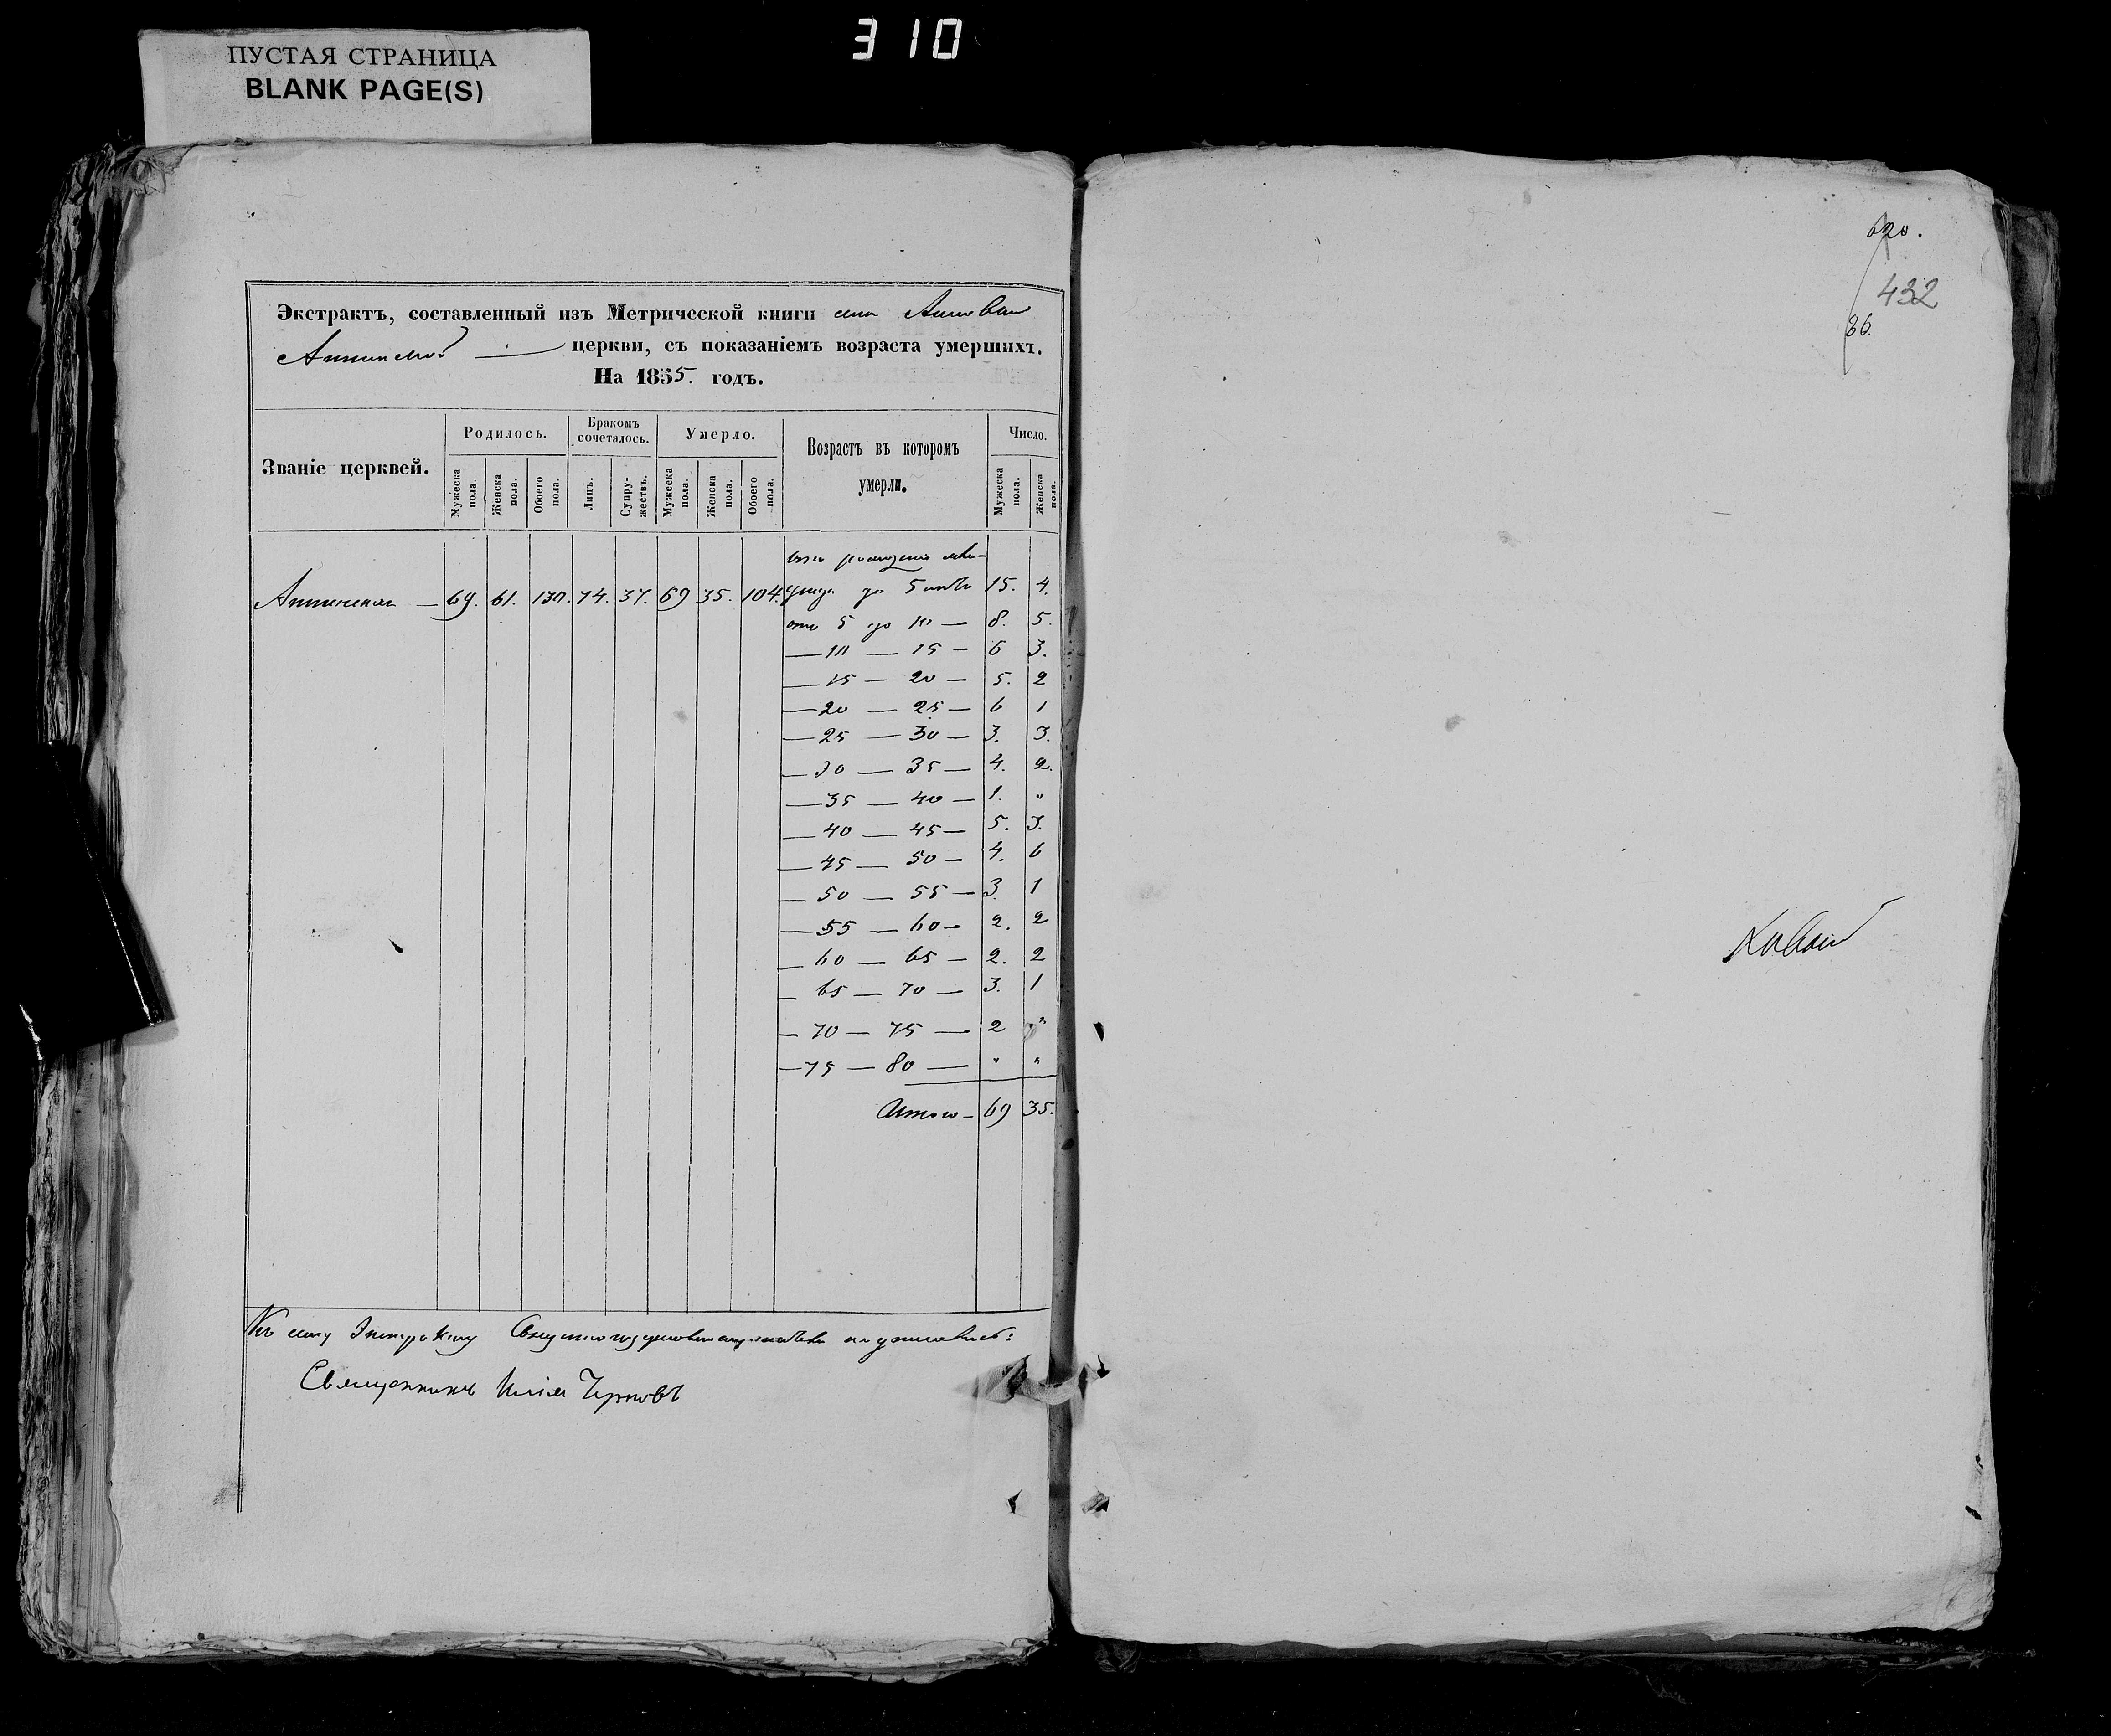 310
ПУСТАЯ СТРАНИЦА
BLANK PAGE(S)
Экстрактъ, составленный изъ Метрической книги
церкви, съ показаніемъ возраста умершихъ.
На 1855. годъ.
Званіе церквей.
Родилось.
Бракомъ сочеталось.
Умерло.
Возрастъ въ которомъ умерли.
Число.
Мужеска пола.
Женска пола.
Обоего пола.
Лицъ.
Супружествъ.
Мужеска пола.
Женска пола.
Обоего пола.
Мужеска пола.
Женска пола.
69. 61. 130. 74. 37. 69 35. 104. до 5 15. 4.
отъ 5 до 10 — 8. 5.
— 10 — 15 — 6 3.
— 15 — 20 — 5. 2
— 20 — 25 — 6 1
— 25 — 30 — 3. 3.
— 30 — 35 — 4. 2.
— 35 — 40 — 1. "
— 40 — 45 — 5. 3.
— 45 — 50 — 4. 6
— 50 — 55 — 3. 1
— 55 — 60 — 2. 2
— 60 — 65 — 2. 2
— 65 — 70 — 3. 1
— 70 — 75 — 2 "
— 75 — 80 — " "
Итого — 69 35.
Къ сему Экстракту
Священникъ Илія Черновъ
620.
432
36.